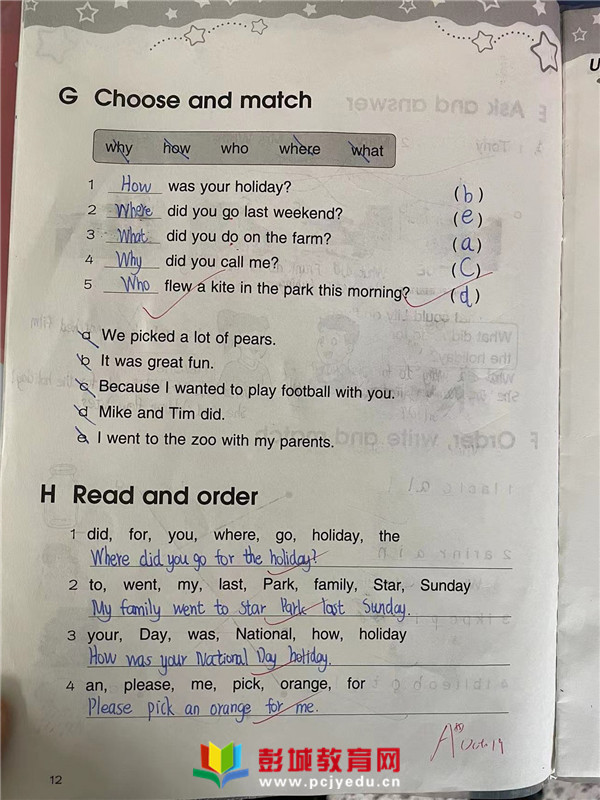 G Choose and match
why how who where what
1 How was your holiday? (b)
2 Where did you go last weekend? (e)
3 What did you do on the farm? (a)
4 Why did you call me? (C)
5 Who flew a kite in the park this morning? (d)
a We picked a lot of pears.
b It was great fun.
c Because I wanted to play football with you.
d Mike and Tim did.
e I went to the zoo with my parents.
H Read and order
1 did, for, you, where, go, holiday, the
Where did you go for the holiday?
2 to, went, my, last, Park, family, Star, Sunday
My family went to Star Park last Sunday.
3 your, Day, was, National, how, holiday
How was your National Day holiday.
4 an, please, me, pick, orange, for
Please pick an orange for me.
彭城教育网
www.pcjyedu.cn
12